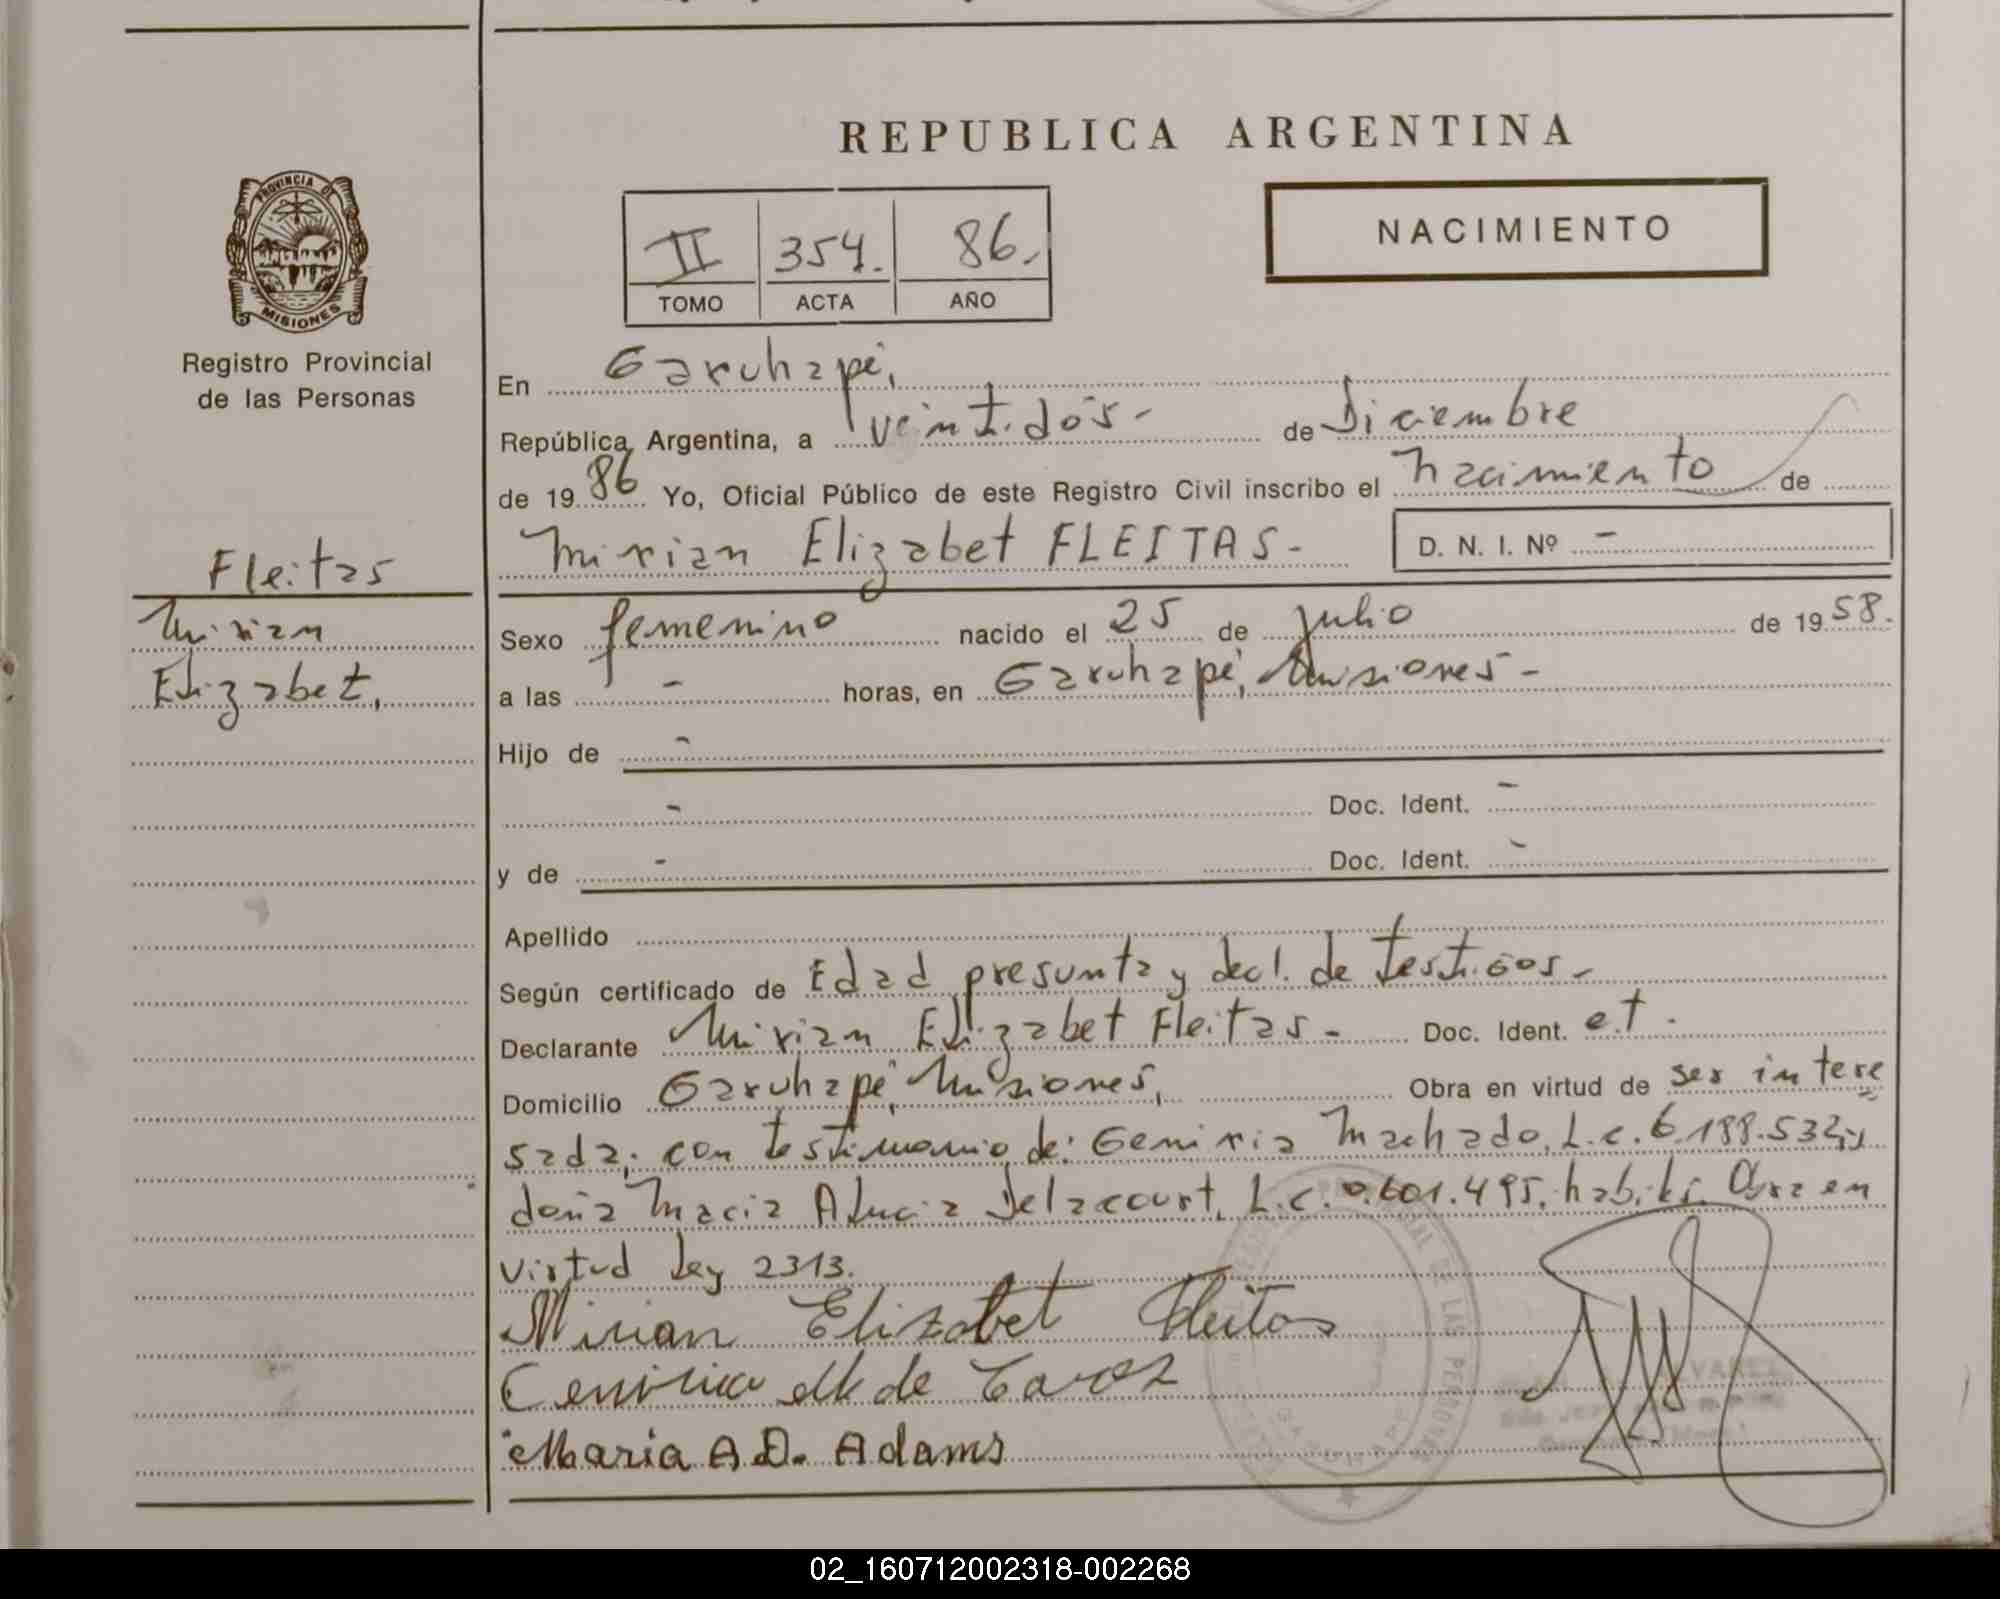 REPUBLICA ARGENTINA
PROVINCIA DE
MISIONES
Registro Provincial
de las Personas
II 354. 86.
TOMO ACTA AÑO
NACIMIENTO
En Garuhapé,
República Argentina, a veintidós- de Diciembre
de 1986 Yo, Oficial Público de este Registro Civil inscribo el nacimiento de
Mirian Elizabet FLEITAS- D. N. I. Nº -
Fleitas
Mirian
Elizabet,
Sexo femenino nacido el 25 de julio de 1958.
a las - horas, en Garuhapé, Misiones-
Hijo de -
- Doc. Ident. -
y de - Doc. Ident. -
Apellido
Según certificado de Edad presunta y decl. de testigos-
Declarante Mirian Elizabet Fleitas- Doc. Ident. e.t.
Domicilio Garuhapé, Misiones, Obra en virtud de ser intere
sada; con testimonio de: Geniria Machado, L.c. 6.188.532, y
doña Maria Alucia Delacourt, L.c. 0.601.495, hábiles. Obra en
virtud Ley 2313.
Mirian Elizabet Fleitas
de
Maria A.D. Adams
DE LAS PERSONAS
02_160712002318-002268